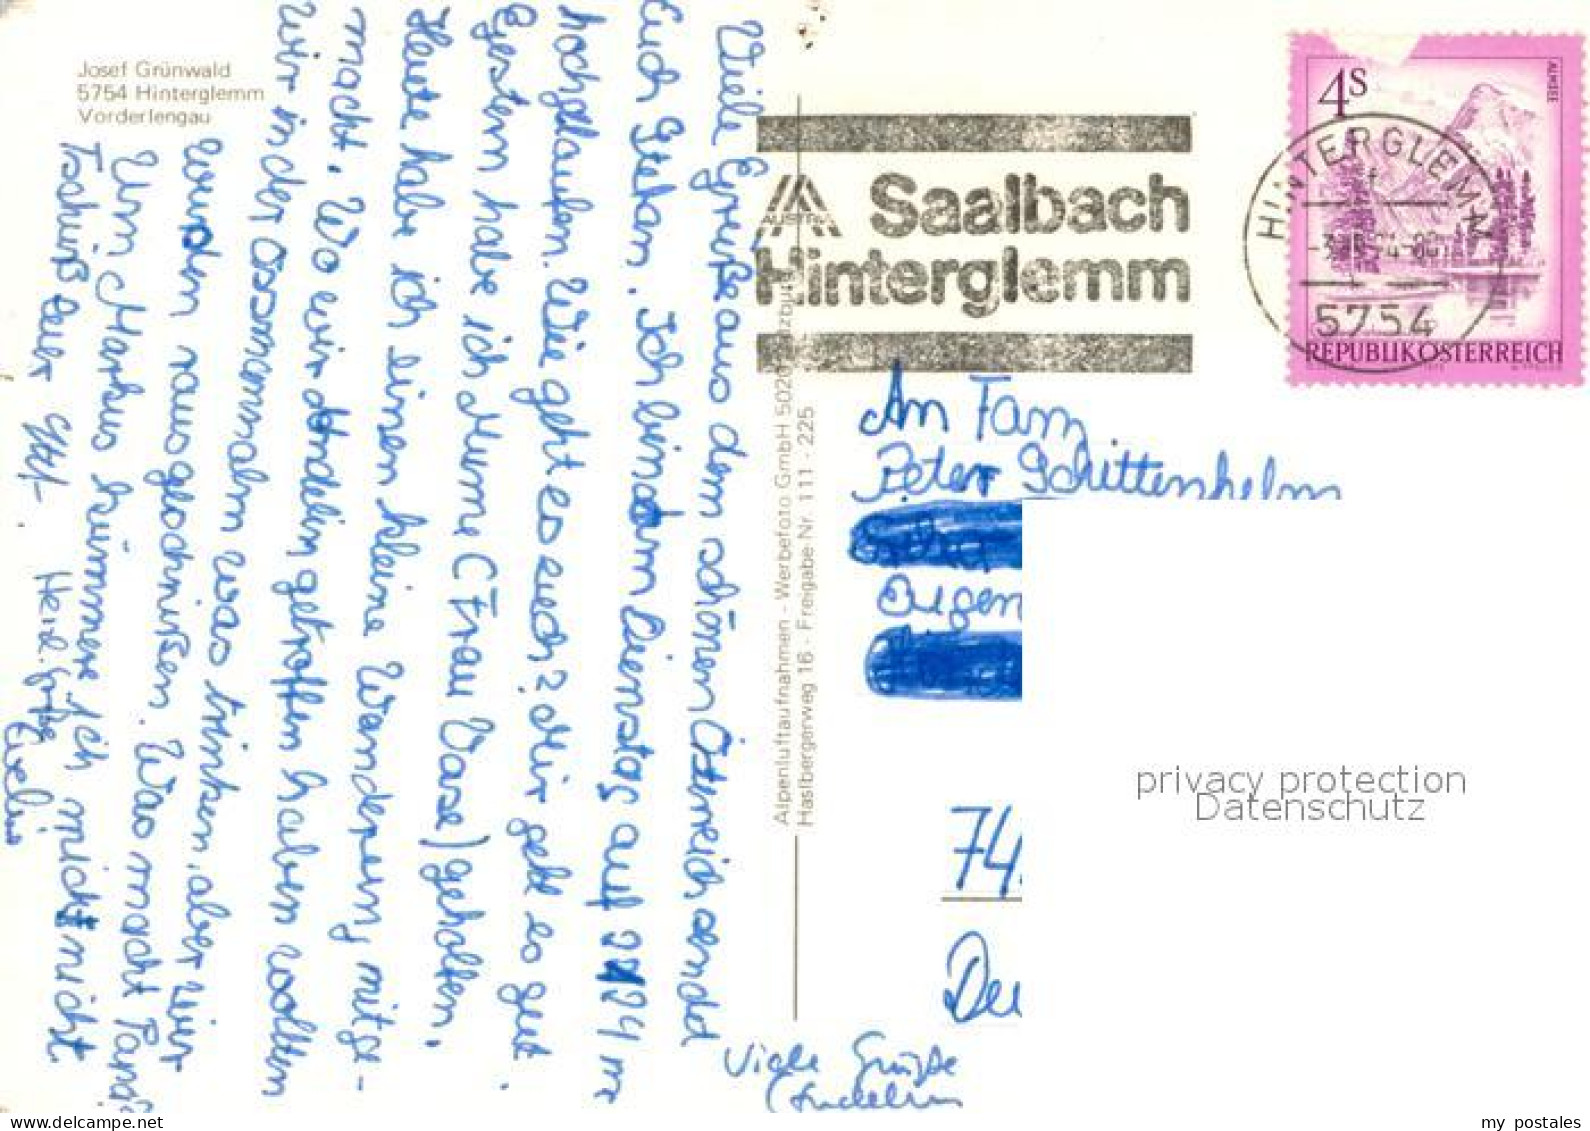 Josef Grünwald
5754 Hinterglemm
Vorderlengau
Viele Grüße aus dem schönen Österreich sendet
Euch Stefan. Ich bin am Dienstag auf 2124 m
hochgelaufen. Wie geht es euch? Mir geht es gut.
Gestern habe ich Mume (Frau Vase) geholfen.
Heute habe ich einen kleine Wanderung mitge-
macht. Wo wir Andelin getroffen haben wollten
wir in der Ossmannalm was trinken, aber wir
wurden rausgeschmißen. Was macht Papa?
Um Markus kümmere ich mich nicht.
Tschüß euer
Viele Grüße
Alpenluftaufnahmen - Werbefoto GmbH 5020 Salzburg
Haslbergerweg 16 - Freigabe Nr. 111 - 225
AUSTRIA
Saalbach
Hinterglemm
4S
ALMSEE
HINTERGLEMM
5754
REPUBLIK ÖSTERREICH
An Fam
Peter Schittenhelm
74
privacy protection
Datenschutz
my postales .com